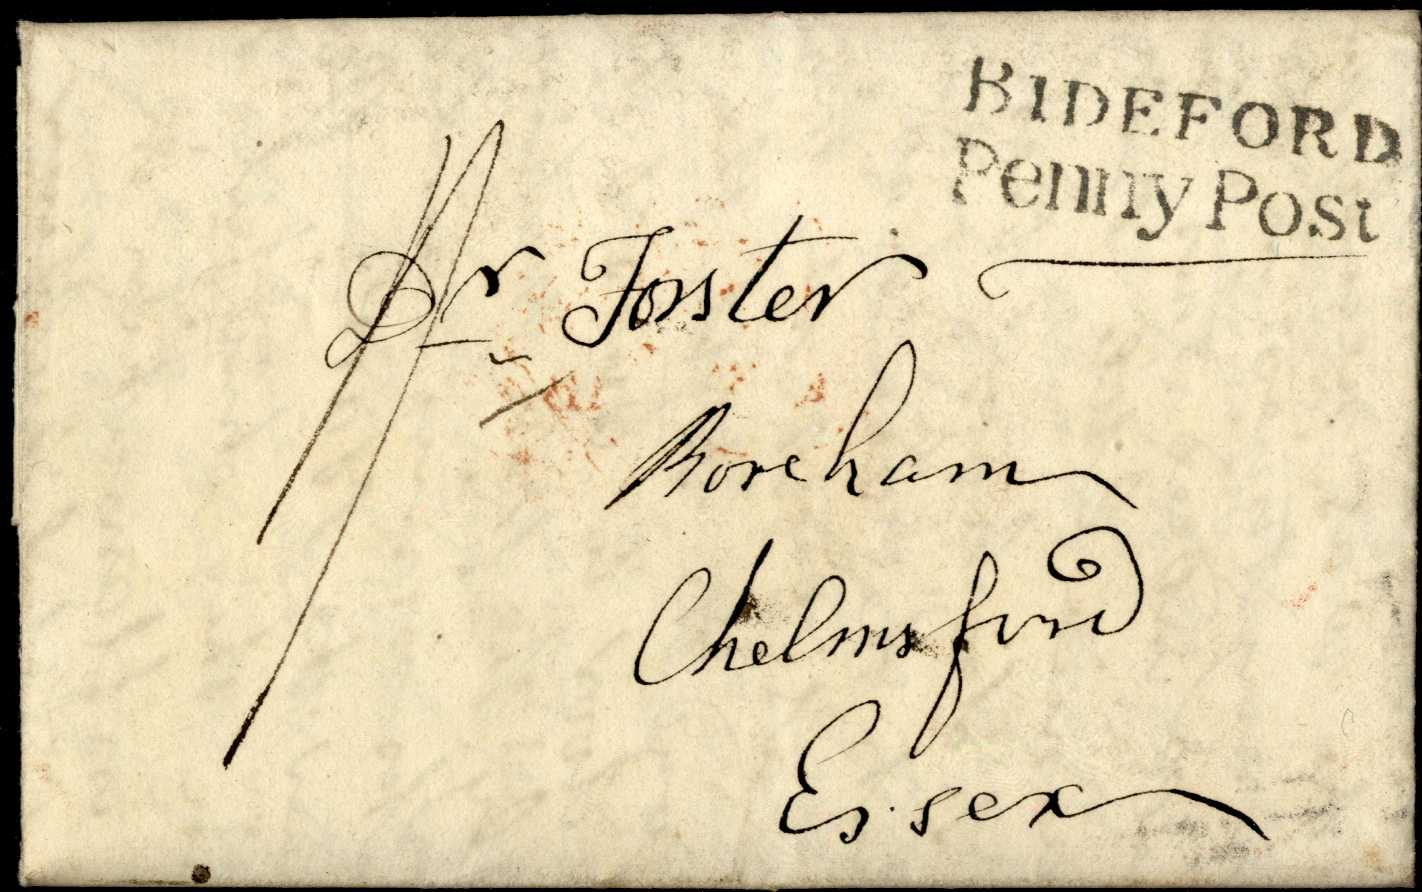 BIDEFORD
Penny Post
Dr Forster
Boreham
Chelmsford
Essex